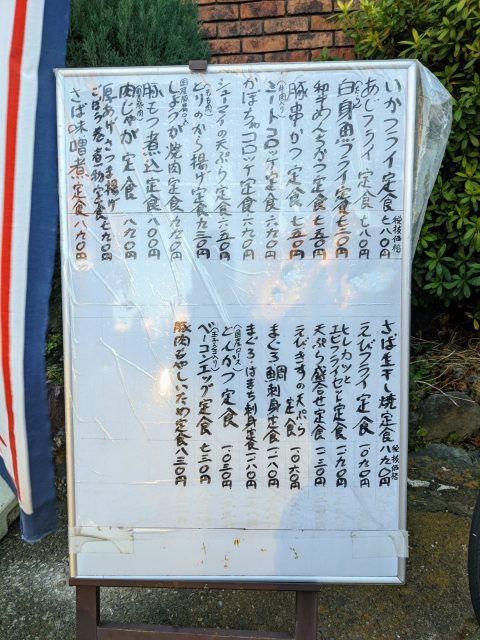 いかフライ定食 七八〇円
税抜価格
あじフライ定食 七八〇円
白身魚フライ定食 七三〇円
和牛めんちかつ定食 七五〇円
豚串かつ定食 七五〇円
ミートコロッケ定食 六九〇円
かぼちゃコロッケ定食 六九〇円
シューマイの天ぷら定食 六五〇円
とりのから揚げ定食 九三〇円
しょうが焼肉定食 九九〇円
豚もつ煮込定食 八〇〇円
肉じゃが定食 八九〇円
厚あげさつま揚げ
ごぼう巻煮物定食 七九〇円
さば味噌煮定食 八九〇円
さば生干し焼定食 八九〇円
税抜価格
えびフライ定食 一〇九〇円
ヒレカツと
エビフライセレ定食 一一九〇円
天ぷら盛合せ定食 一二三〇円
えびきすの天ぷら
定食 一〇六〇円
まぐろ 鯛刺身定食 一一八〇円
まぐろ・はまち刺身定食 一一八〇円
とんかつ定食 一〇三〇円
ベーコンエッグ定食 七三〇円
豚肉もやしいため定食 八三〇円